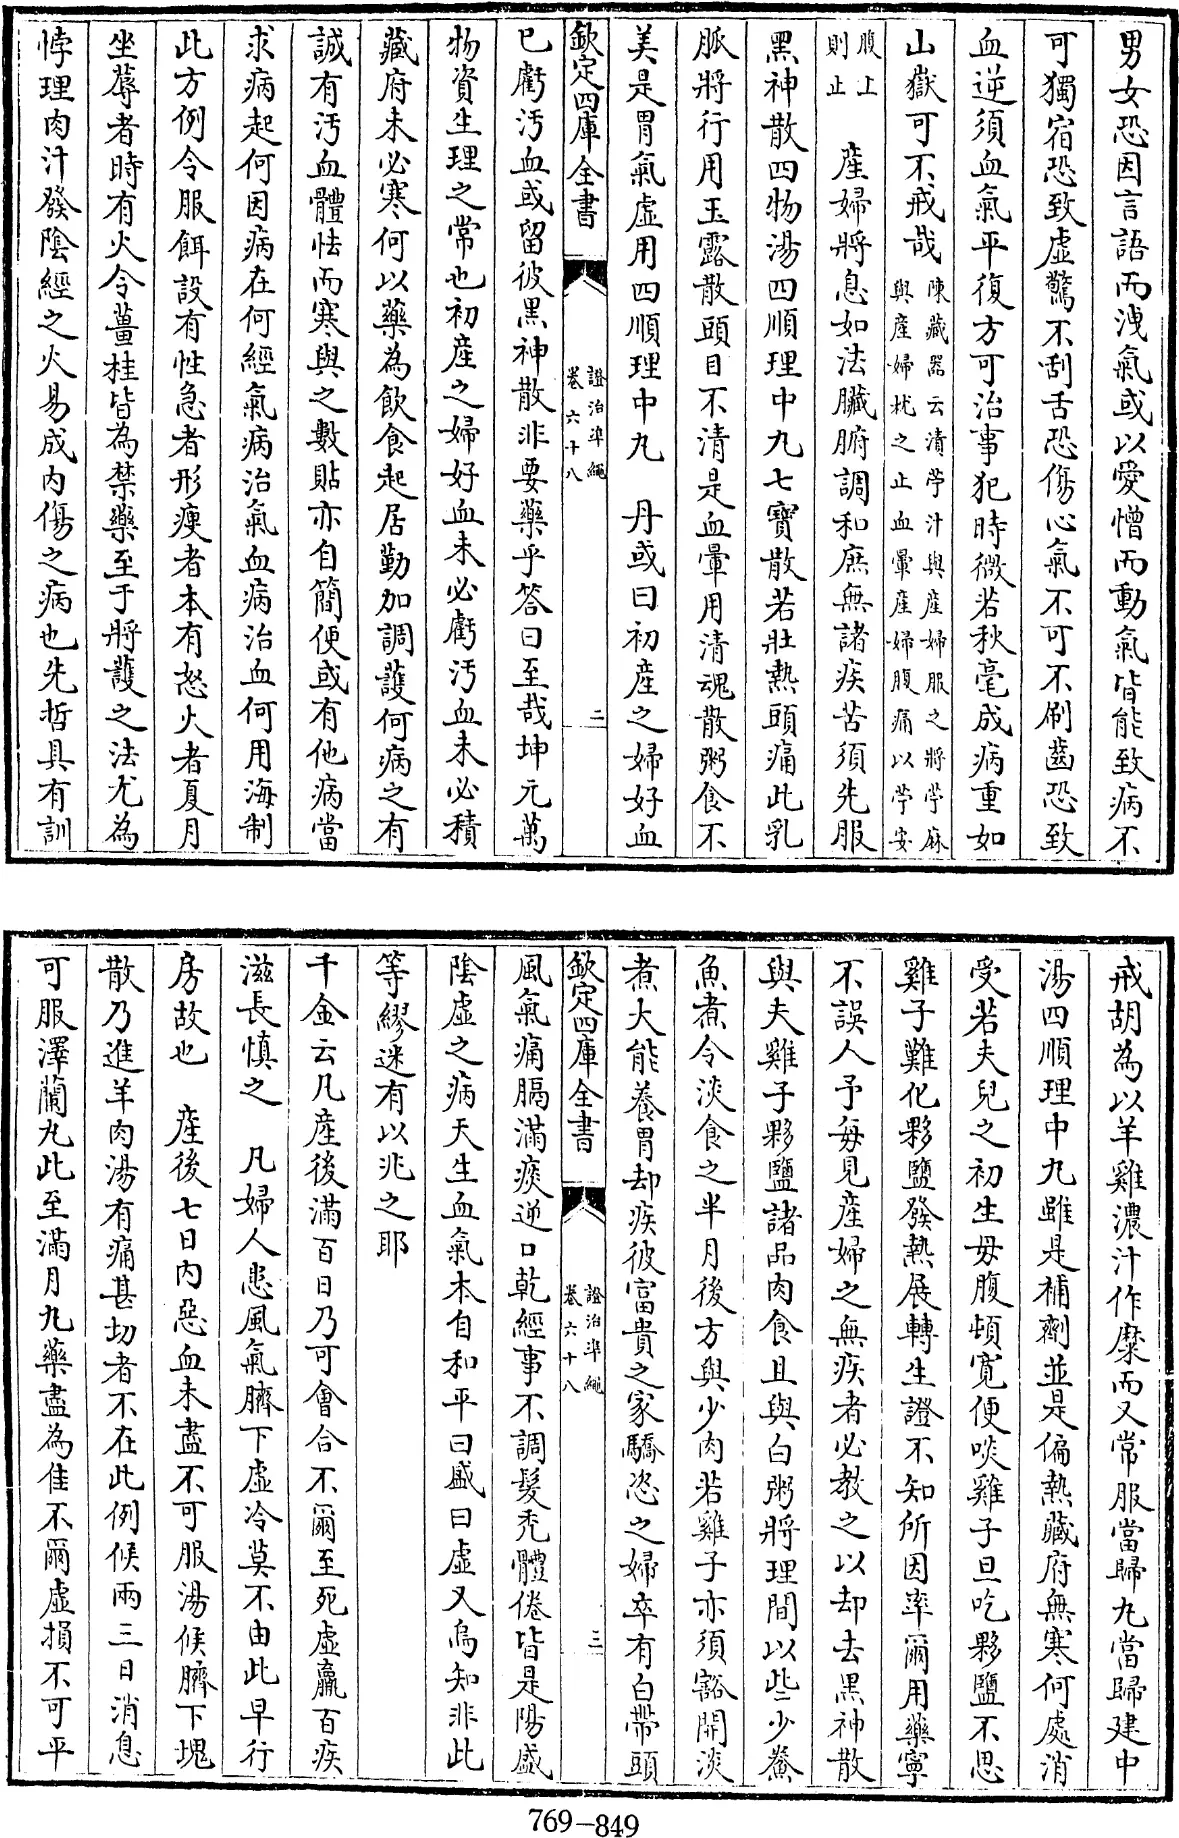 男女恐因言語而洩氣或以愛憎而動氣皆能致病不
可獨宿恐致虛驚不刮舌恐傷心氣不可不刷齒恐致
血逆須血氣平復方可治事犯時微若秋毫成病重如
山嶽可不戒哉陳藏器云清苧汁與產婦服之將苧麻
與產婦枕之止血暈產婦腹痛以苧安
腹上
則止　產婦將息如法臟腑調和庶無諸疾苦須先服
黑神散四物湯四順理中丸七寶散若壯熱頭痛此乳
脈將行用玉露散頭目不清是血暈用清魂散粥食不
美是胃氣虛用四順理中丸　丹或曰初產之婦好血
欽定四庫全書
證治準繩
卷六十八
二
已虧污血或留彼黑神散非要藥乎答曰至哉坤元萬
物資生理之常也初產之婦好血未必虧污血未必積
藏府未必寒何以藥為飲食起居勤加調護何病之有
誠有污血體怯而寒與之數貼亦自簡便或有他病當
求病起何因病在何經氣病治氣血病治血何用海制
此方例令服餌設有性急者形瘦者本有怒火者夏月
坐蓐者時有火令薑桂皆為禁藥至于將護之法尤為
悖理肉汁發陰經之火易成內傷之病也先哲具有訓
戒胡為以羊雞濃汁作糜而又常服當歸丸當歸建中
湯四順理中丸雖是補劑並是偏熱藏府無寒何處消
受若夫兒之初生母腹頓寬便啖雞子且吃夥鹽不思
雞子難化夥鹽發熱展轉生證不知所因率爾用藥寧
不誤人予每見產婦之無疾者必教之以却去黑神散
與夫雞子夥鹽諸品肉食且與白粥將理間以些少鯗
魚煮令淡食之半月後方與少肉若雞子亦須豁開淡
煮大能養胃却疾彼富貴之家驕恣之婦卒有白帶頭
欽定四庫全書
證治準繩
卷六十八
三
風氣痛膈滿痰逆口乾經事不調髮禿體倦皆是陽盛
陰虛之病天生血氣本自和平曰盛曰虛又烏知非此
等繆迷有以兆之耶
千金云凡產後滿百日乃可會合不爾至死虛羸百疾
滋長慎之　凡婦人患風氣臍下虛冷莫不由此早行
房故也　產後七日內惡血未盡不可服湯候臍下塊
散乃進羊肉湯有痛甚切者不在此例候兩三日消息
可服澤蘭丸此至滿月丸藥盡為佳不爾虛損不可平
769-849